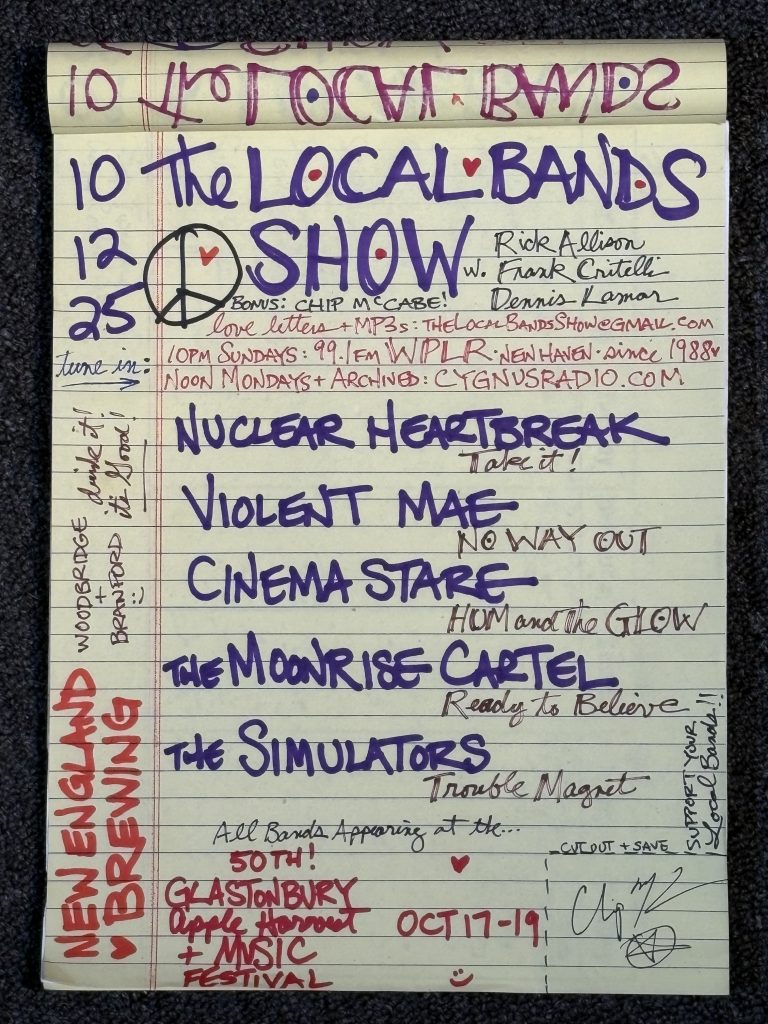 10 the LOCAL BANDS
10 The LOCAL BANDS
12 SHOW w. Rick Allison
Frank Critelli
25 BONUS: CHIP McCABE! Dennis Lamar
love letters + MP3s: THELOCALBANDSSHOW@GMAIL.COM
tune in: 10PM SUNDAYS: 99.1 FM WPLR · NEW HAVEN · since 1988
NOON MONDAYS + ARCHIVED: CYGNUSRADIO.COM
NUCLEAR HEARTBREAK
Take it!
VIOLENT MAE
NO WAY OUT
CINEMA STARE
HUM and the GLOW
THE MOONRISE CARTEL
Ready to Believe
THE SIMULATORS
Trouble Magnet
All Bands Appearing at the...
50TH!
GLASTONBURY
Apple Harvest OCT 17-19
+ MUSIC
FESTIVAL
NEW ENGLAND
BREWING
WOODBRIDGE
+
BRANFORD
drink it!
it's Good!
SUPPORT YOUR
Local Bands!!
CUT OUT + SAVE